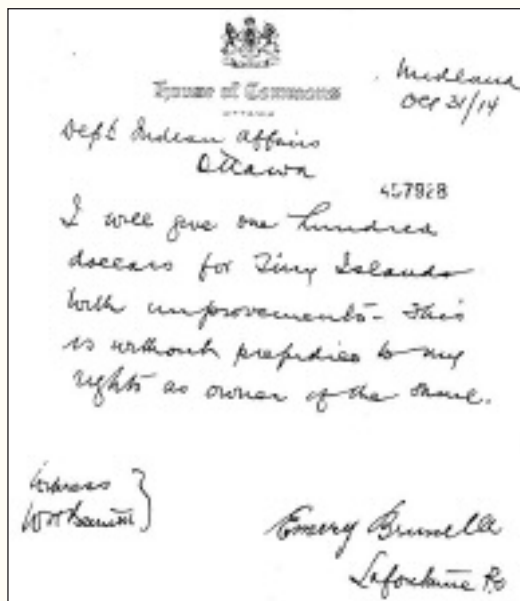 House of Commons
OTTAWA
Midland
Oct 31/14
Dept Indian Affairs
Ottawa
457928
I will give one hundred
dollars for Tiny Islands
with improvements - This
is without prejudice to my
rights as owner of the same.
Witness
W H Bennett
Emery Brunelle
Lafontaine P.O